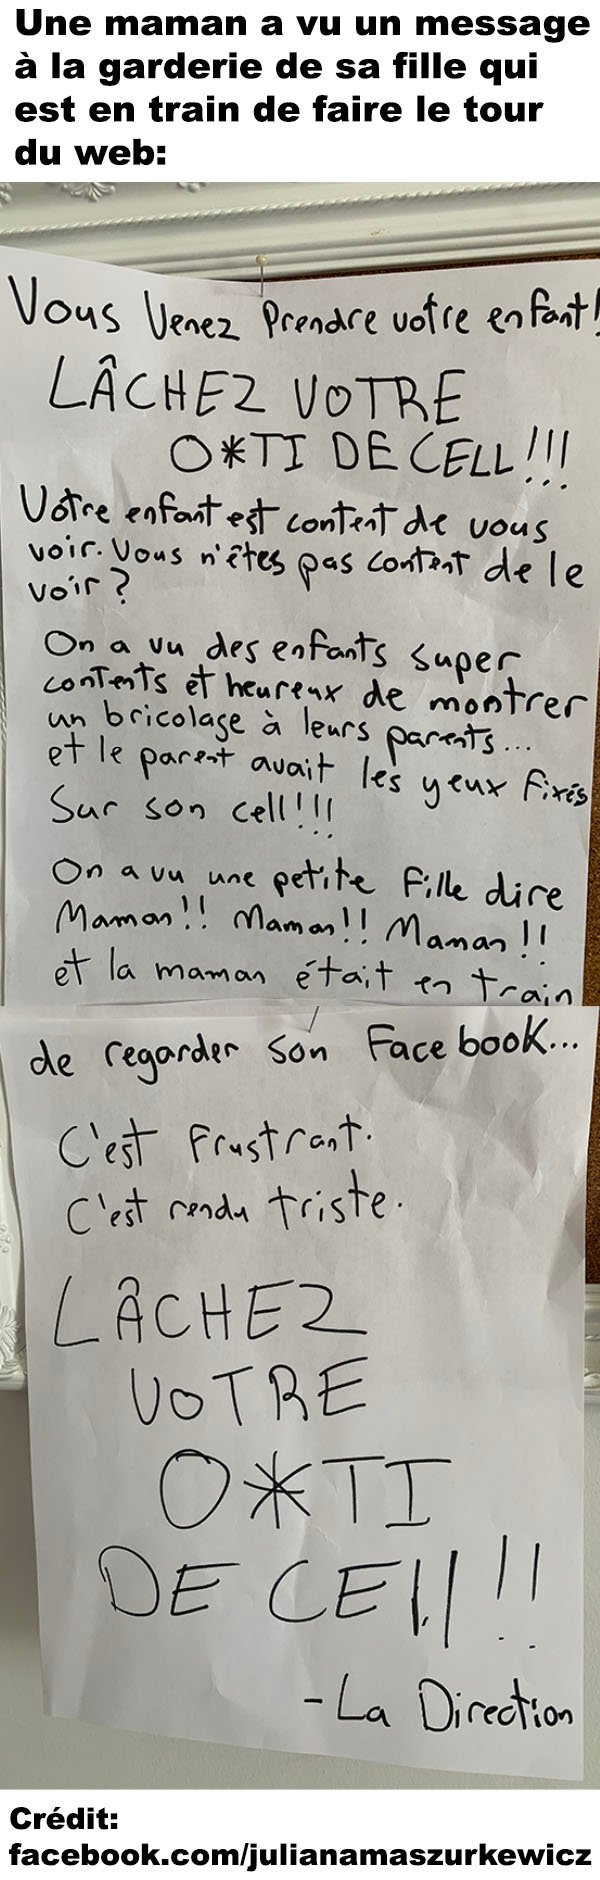 Une maman a vu un message
à la garderie de sa fille qui
est en train de faire le tour
du web:
Vous Venez Prendre votre enfant!
LÂCHEZ VOTRE
O*TI DE CELL!!!
Votre enfant est content de vous
voir. Vous n'êtes pas content de le
voir?
On a vu des enfants super
contents et heureux de montrer
un bricolage à leurs parents...
et le parent avait les yeux fixés
Sur son cell!!!
On a vu une petite fille dire
Maman!! Maman!! Maman!!
et la maman était en train
de regarder son Facebook...
C'est frustrant.
C'est rendu triste.
LÂCHEZ
VOTRE
O*TI
DE CELL!!
- La Direction
Crédit:
facebook.com/julianamaszurkewicz